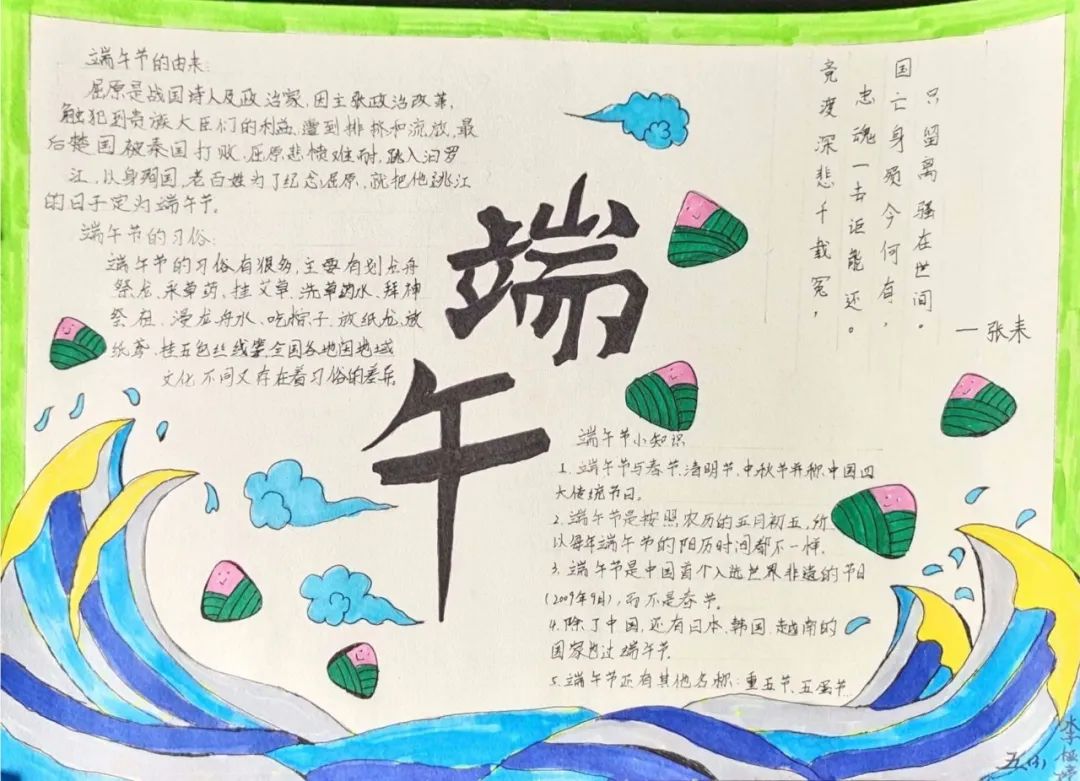 端午节的由来:
屈原是战国诗人及政治家,因主张政治改革,
触犯到贵族大臣们的利益,遭到排挤和流放,最
后楚国被秦国打败,屈原悲愤难耐,跳入汨罗
江,以身殉国,老百姓为了纪念屈原,就把他跳江
的日子定为端午节。
端午节的习俗:
端午节的习俗有很多,主要有划龙舟
祭龙、采草药、挂艾草、洗草药水、拜神
祭祖、浸龙舟水、吃粽子、放纸龙、放
纸鸢、拴五色丝线等,全国各地因地域
文化不同又存在着习俗的差异
端
午
竞渡深悲千载冤,
忠魂一去讵能还。
国亡身殒今何有,
只留离骚在世间。
—张耒
端午节小知识
1、端午节与春节、清明节、中秋节并称中国四
大传统节日。
2、端午节是按照农历的五月初五,所
以每年端午节的阳历时间都不一样.
3、端午节是中国首个入选世界非遗的节日
(2009年9月),而不是春节。
4、除了中国,还有日本、韩国、越南的
国家也过端午节.
5、端午节还有其他名称:重五节、五蛋节